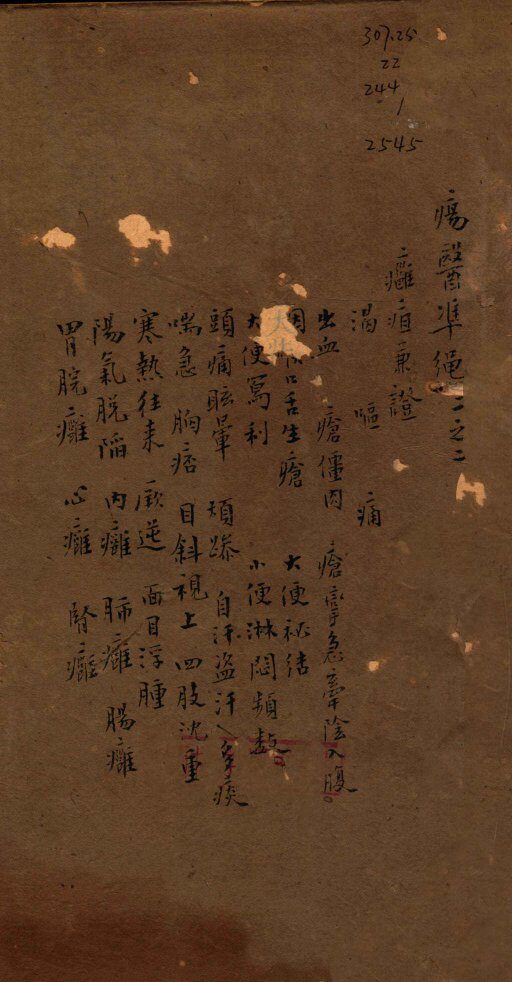 307.25
22
244
1
2545
瘍醫準繩一之二
癰疽兼證
渴　嘔　痛
出血　瘡僵肉　瘡牽急牽陰入腹
咽喉口舌生瘡　大便祕結
大便寫利　小便淋悶頻數
頭痛眩暈　煩躁　自汗盜汗　多痰
喘急　胸痞　目斜視上　四肢沈重
寒熱往來　厥逆　面目浮腫
陽氣脫陷　內癰　肺癰　腸癰
胃脘癰　心癰　腎癰